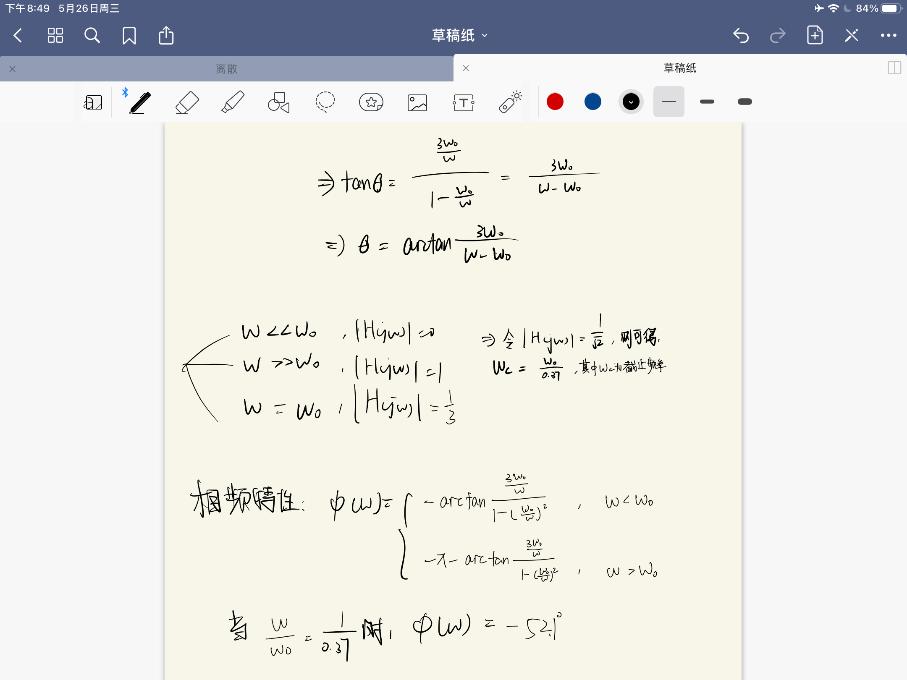 下午8:49 5月26日周三
84%
草稿纸
离散
草稿纸
⇒ tanθ = (3w₀/w) / (1 - w₀/w) = 3w₀ / (w - w₀)
⇒ θ = arctan 3w₀ / (w - w₀)
w << w₀ , |H(jw)| = 0
w >> w₀ , |H(jw)| = 1
w = w₀ , |H(jw)| = 1/3
⇒ 令 |H(jw)| = 1/√2 , 则可得,
w_c = w₀/0.37 , 其中w_c为截止频率
相频特性: φ(w) = { -arctan (3w₀/w) / (1-(w₀/w)²) , w < w₀
-π - arctan (3w₀/w) / (1-(w₀/w)²) , w > w₀
当 w/w₀ = 1/0.37 时, φ(w) = -52.1°